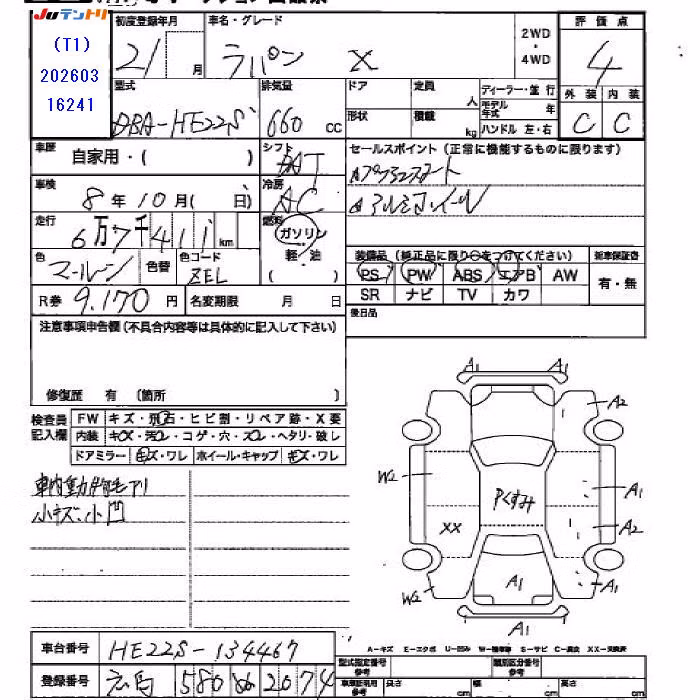 JUテントリ
(T1)
202603
16241
初度登録年月
21/ 月
車名・グレード
ラパン X
2WD
・
4WD
評価点
4
外装 内装
C C
型式
DBA-HE22S
排気量
660 cc
ドア 定員 人
形状 積載 kg
ディーラー・並行
モデル年式 年
ハンドル 左・右
車歴
自家用・( )
シフト
AT
セールスポイント(正常に機能するものに限ります)
アルミホイール
車検
8年10月( 日)
冷房
AC
走行
6万7千411 km
燃料
ガソリン
軽油
( )
色
マールーン
色替
色コード
ZEL
装備品(純正品に限り○をつけてください)
新車保証書
有・無
PS PW ABS エアB AW
SR ナビ TV カワ
R券 9.170 円
名変期限 月 日
後日品
注意事項申告欄(不具合内容等は具体的に記入して下さい)
修復歴 有 (箇所 )
検査員
記入欄
FW キズ・飛石・ヒビ割・リペア跡・X要
内装 キズ・汚レ・コゲ・穴・スレ・ヘタリ・破し
ドアミラー キズ・ワレ ホイール・キャップ キズ・ワレ
小キズ、小凹
A1 A1
A2
W2
Pくすみ
A1
XX
A2
W2
A1
A1
A1
A-キズ E-エクボ U-凹み W-補修跡 S-サビ C-腐食 XX-交換済
車台番号 HE22S-134467
登録番号 580 2074
型式指定番号 参考
類別区分番号 参考
車庫証明用 参考
長さ cm 幅 cm 高さ cm